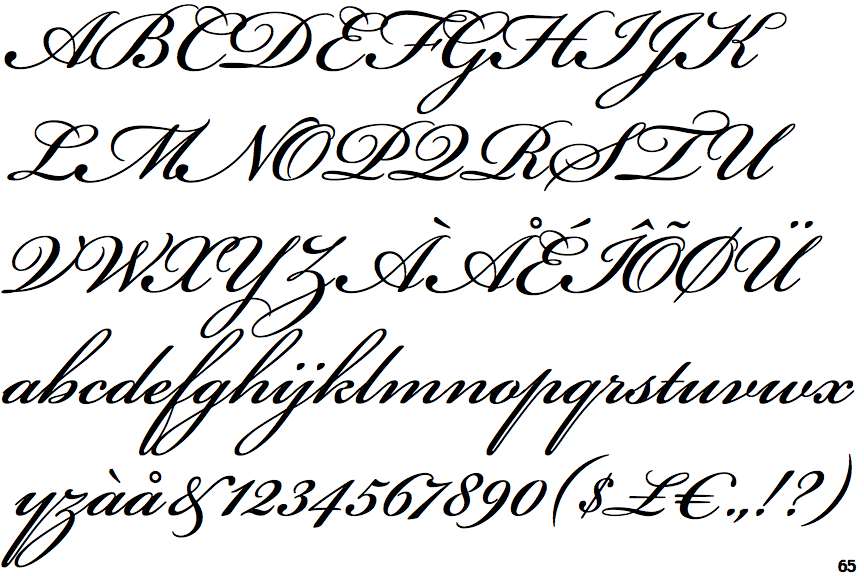 ABCDEFGHIJK
LMNOPQRSTU
VWXYZÀÅÉÎÕØÜ
abcdefghijklmnopqrstuvwx
yzàå&1234567890($£€.,!?)
65